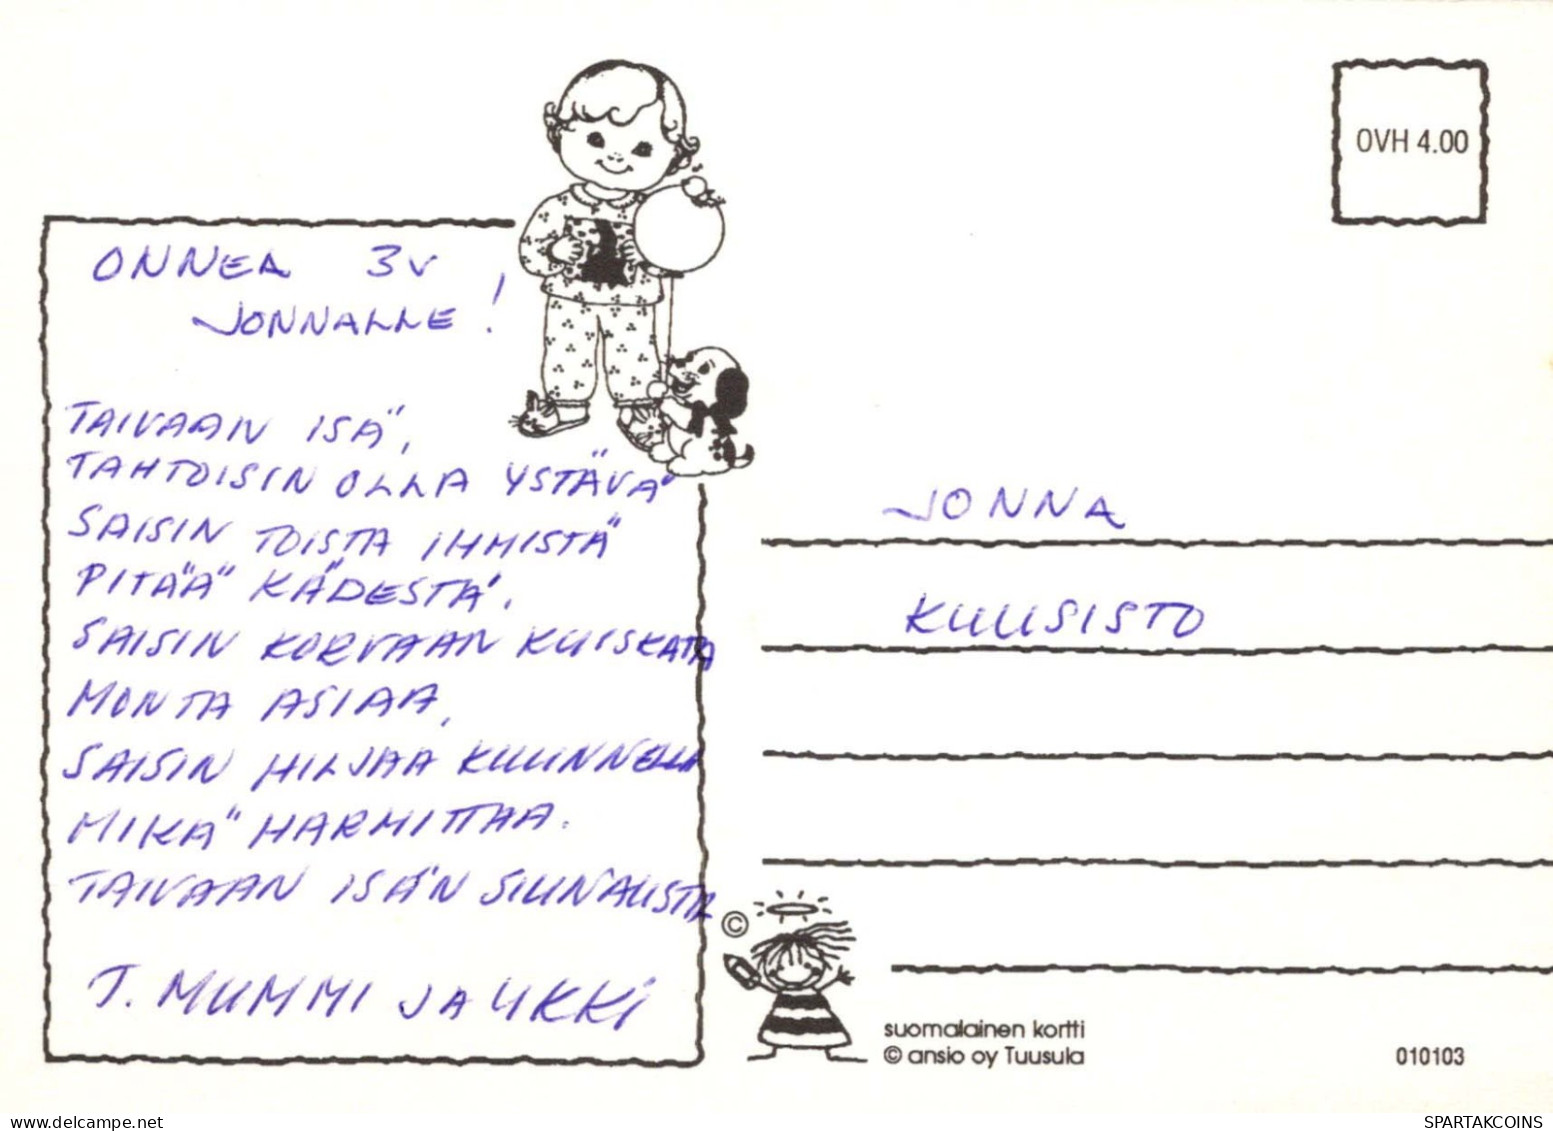 OVH 4.00
ONNEA 3V
JONNALLE!
TAIVAAN ISÄ,
TAHTOISIN OLLA YSTÄVÄ
SAISIN TOISTA IHMISTÄ
PITÄÄ KÄDESTÄ,
SAISIN KORVAAN KUISKATA
MONTA ASIAA,
SAISIN HILJAA KUUNNELLA
MIKÄ HARMITTAA.
TAIVAAN ISÄN SIUNAUSTA
T. MUMMI JA UKKI
JONNA
KUUSISTO
©
suomalainen kortti
© ansio oy Tuusula
010103
www.delcampe.net
SPARTAKCOINS